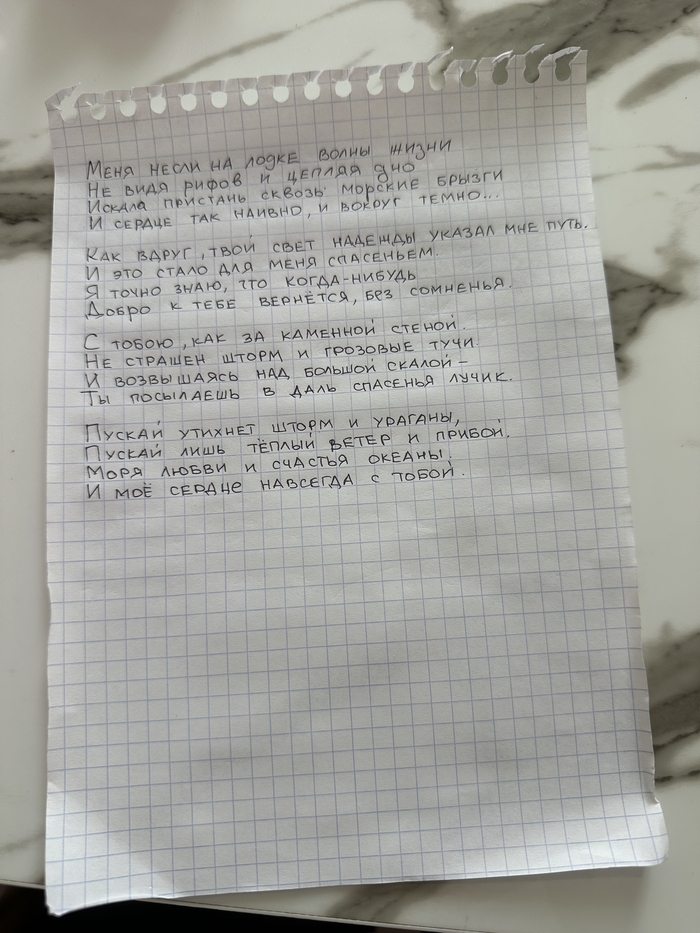 Меня несли на лодке волны жизни
Не видя рифов и цепляя дно
Искала пристань сквозь морские брызги
И сердце так наивно, и вокруг темно...
Как вдруг, твой свет надежды указал мне путь.
И это стало для меня спасеньем.
Я точно знаю, что когда-нибудь
Добро к тебе вернётся, без сомненья.
С тобою, как за каменной стеной.
Не страшен шторм и грозовые тучи.
И возвышаясь над большой скалой –
Ты посылаешь в даль спасенья лучик.
Пускай утихнет шторм и ураганы,
Пускай лишь тёплый ветер и прибой.
Моря любви и счастья океаны.
И моё сердце навсегда с тобой.